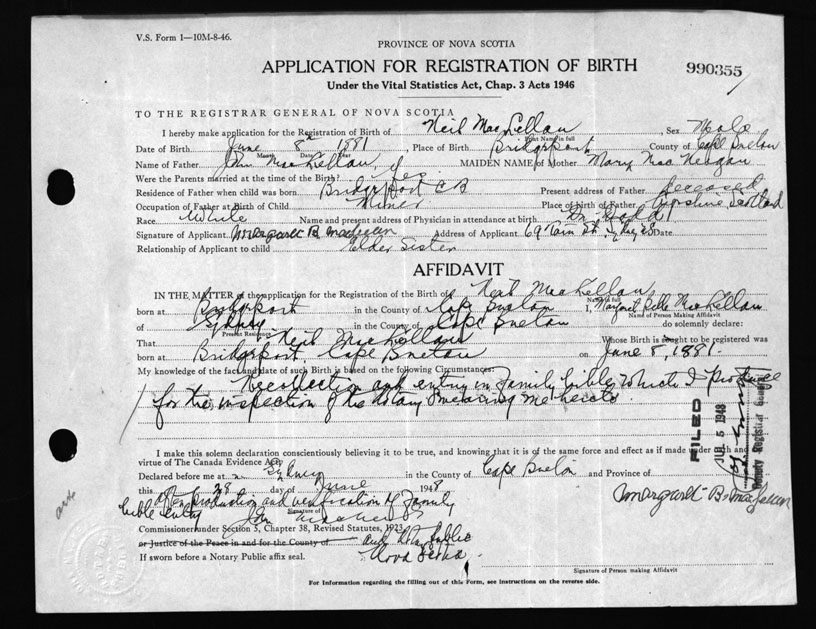 V.S. Form 1—10M-8-46.
PROVINCE OF NOVA SCOTIA
APPLICATION FOR REGISTRATION OF BIRTH
990355
Under the Vital Statistics Act, Chap. 3 Acts 1946
TO THE REGISTRAR GENERAL OF NOVA SCOTIA
I hereby make application for the Registration of Birth of Neil MacLellan Sex Male
Print Name in full
Date of Birth June 8th 1881 Place of Birth Bridgeport County of Cape Breton
Month Date Year
Name of Father John MacLellan MAIDEN NAME of Mother Mary Mac
Were the Parents married at the time of the Birth? yes
Residence of Father when child was born Bridgeport C B Present address of Father deceased
Occupation of Father at Birth of Child Miner Place of Birth of Father Scotland
Race White Name and present address of Physician in attendance at birth Dr
Signature of Applicant Margaret B. Address of Applicant 69 St.
Relationship of Applicant to child Elder Sister
AFFIDAVIT
IN THE MATTER of the application for the Registration of the Birth of Neil MacLellan
Name in full
born at in the County of Cape Breton I, Margaret Belle MacLellan
Name of Person Making Affidavit
of Sydney in the County of Cape Breton do solemnly declare:
Present Residence
That Neil MacLellan Whose Birth is sought to be registered was
born at Bridgeport, Cape Breton on June 8, 1881.
My knowledge of the fact and date of such Birth is based on the following Circumstances
Recollection and entry in Family bible, which I produce
for the inspection of the notary swearing me hereto.
I make this solemn declaration conscientiously believing it to be true, and knowing that it is of the same force and effect as if made under oath and
virtue of The Canada Evidence Act.
Declared before me at Sydney in the County of Cape Breton and Province of
this 28 day of June 1948
after production and verification of Family
bible entry John
Signature of
Commissioner under Section 5, Chapter 38, Revised Statutes, 1923,
or Justice of the Peace in and for the County of and Notary Public
If sworn before a Notary Public affix seal. Nova Scotia
Margaret B. MacLellan
Signature of Person making Affidavit.
For Information regarding the filling out of this Form, see instructions on the reverse side.
FILED
JUL 5 1948
Deputy Registrar General